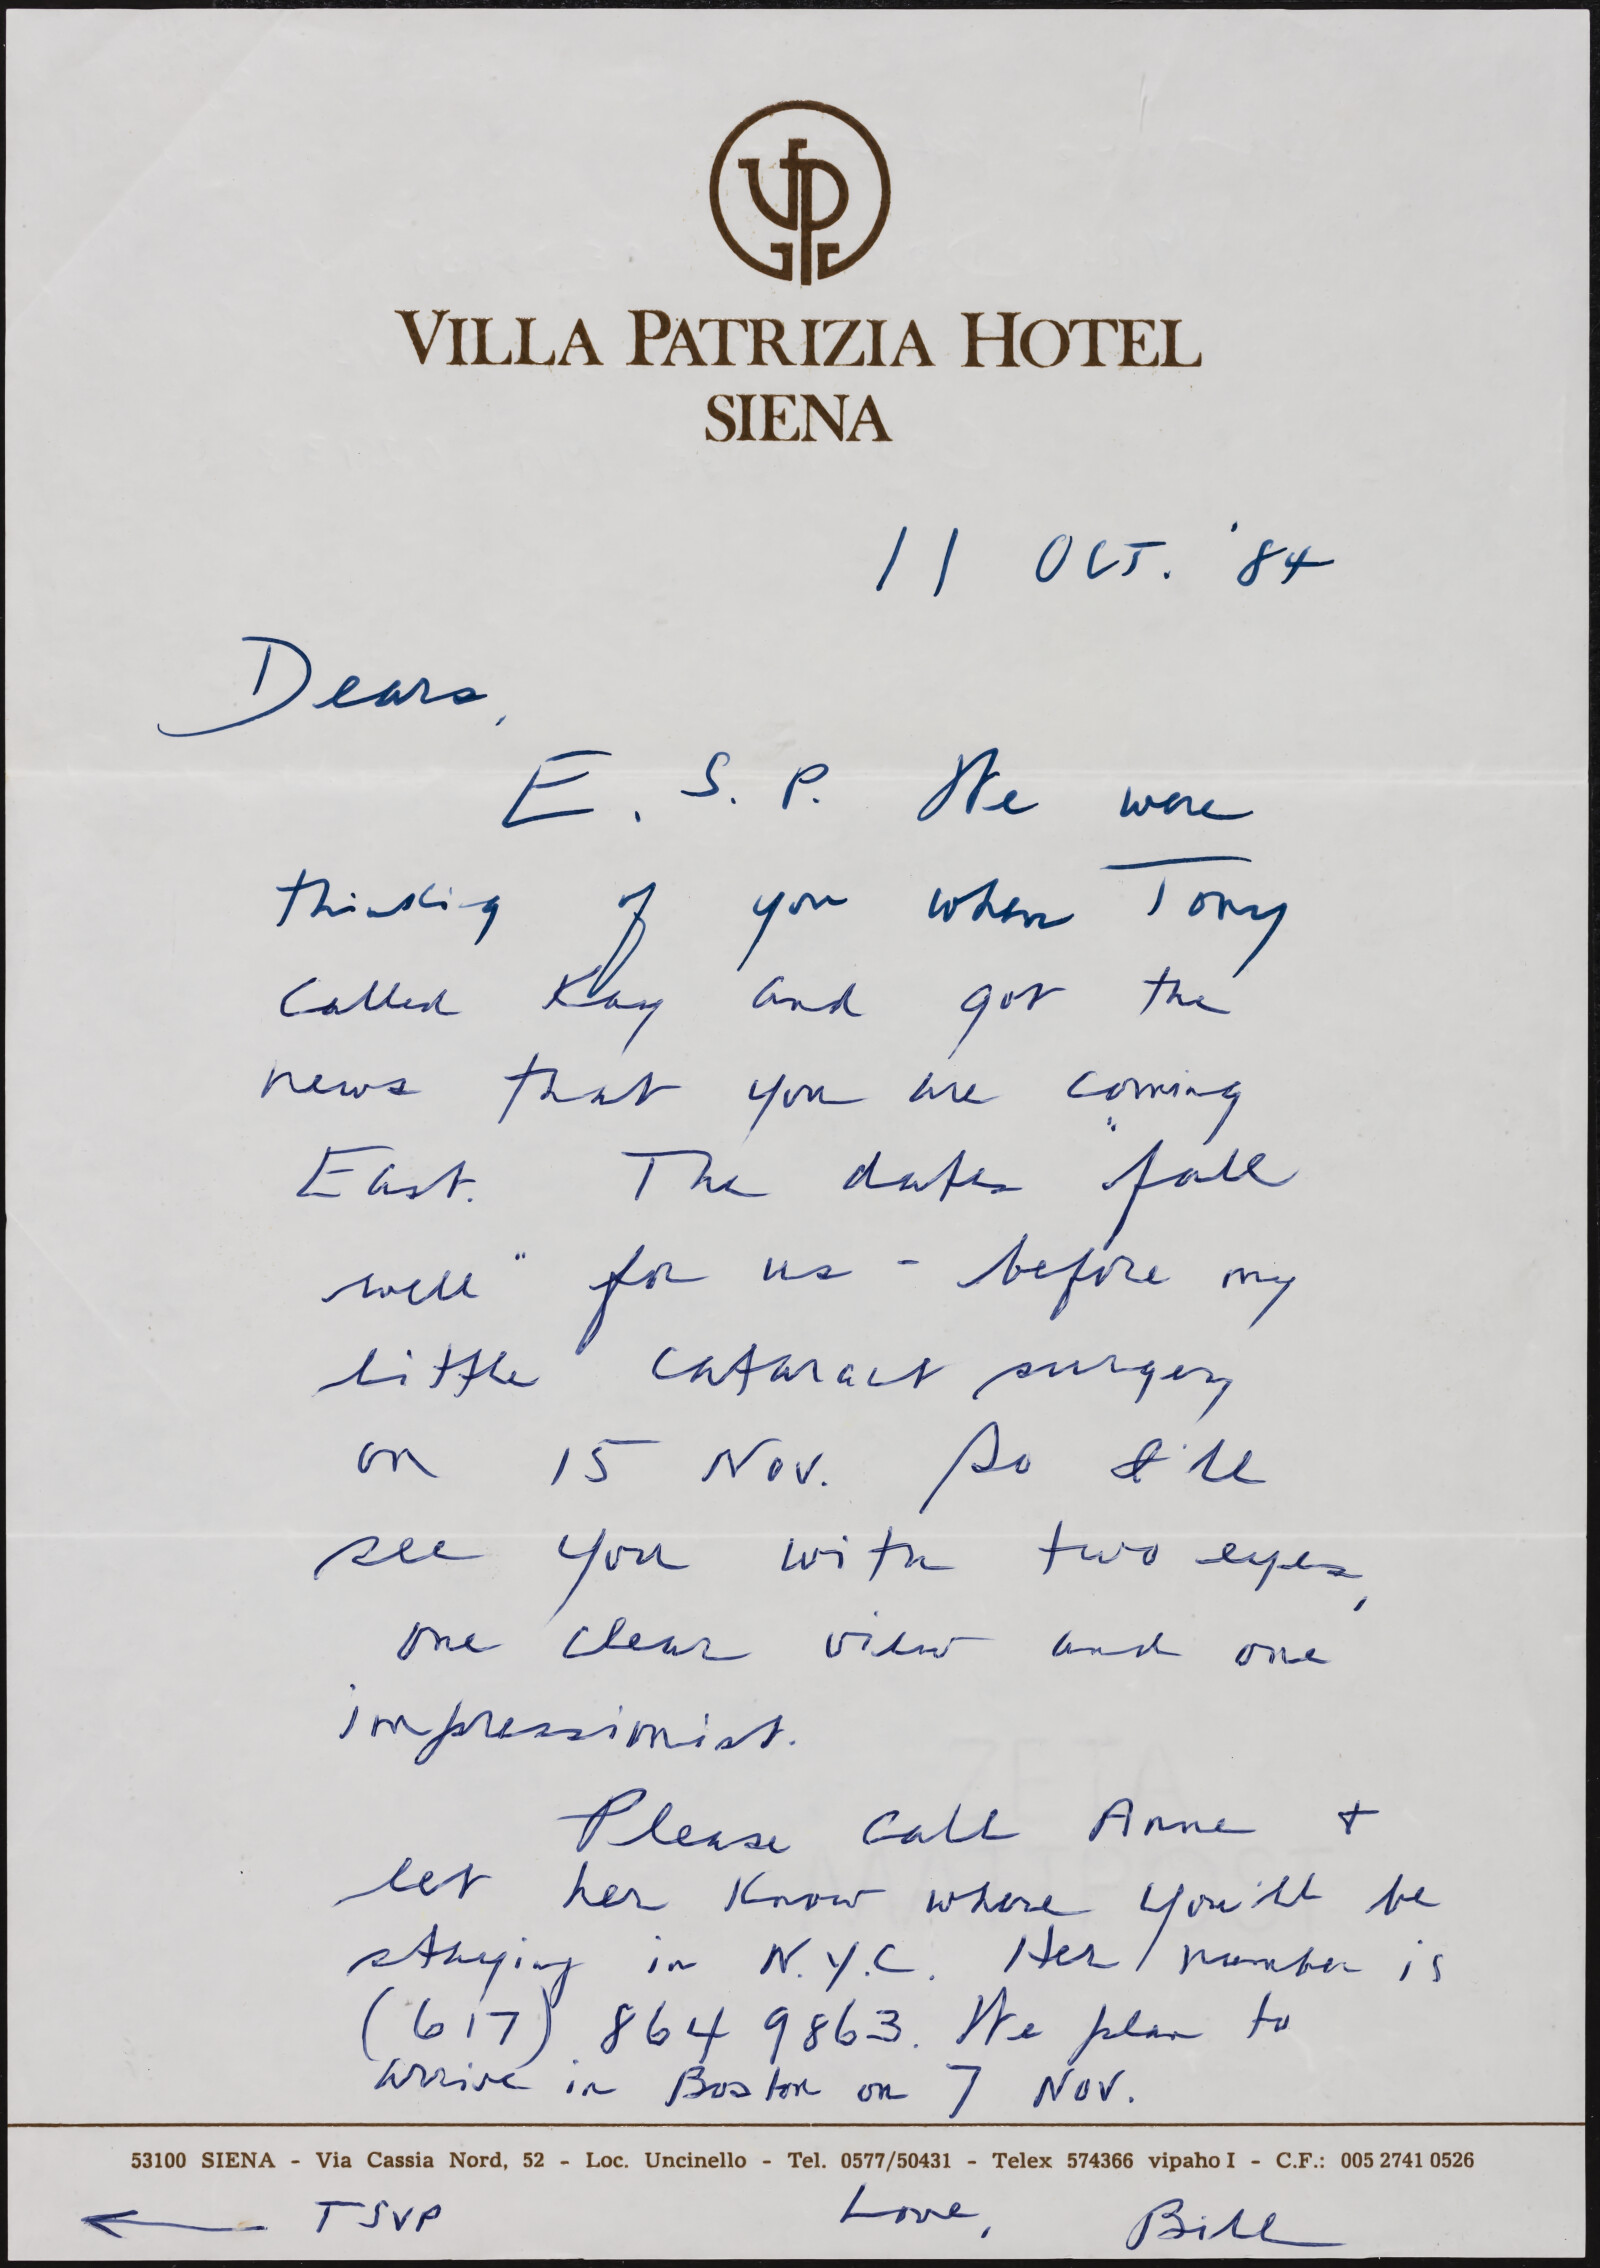 VILLA PATRIZIA HOTEL
SIENA
11 OCT. '84
Dears,
E. S. P. We were
thinking of you when Tony
called Kay and got the
news that you are coming
East. The dates "fall
well" for us - before my
little cataract surgery
on 15 Nov. So I'll
see you with two eyes,
one clear view and one
impressionist.
Please call Anne +
let her know where you'll be
staying in N.Y.C. Her number is
(617) 864 9863. We plan to
arrive in Boston on 7 Nov.
53100 SIENA - Via Cassia Nord, 52 - Loc. Uncinello - Tel. 0577/50431 - Telex 574366 vipaho I - C.F.: 005 2741 0526
← TSVP Love, Bill